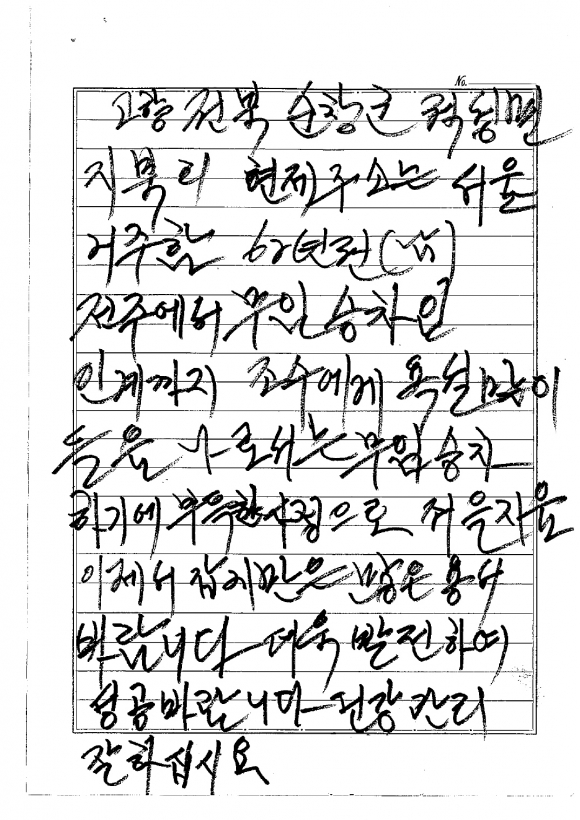 No.
고향 전북 순창군 적성면
지북리 현제주소는 서울
거주함 62년전(남)
전주에서 무임승차 인
인계까지 조수에게 욕설많이
들음 나로서는 무임승차
하기에 부득한사정으로
이제서 잡게만은 많은 용서
바랍니다 더욱 발전하여
성공바랍니다 건강관리
잘하십시요